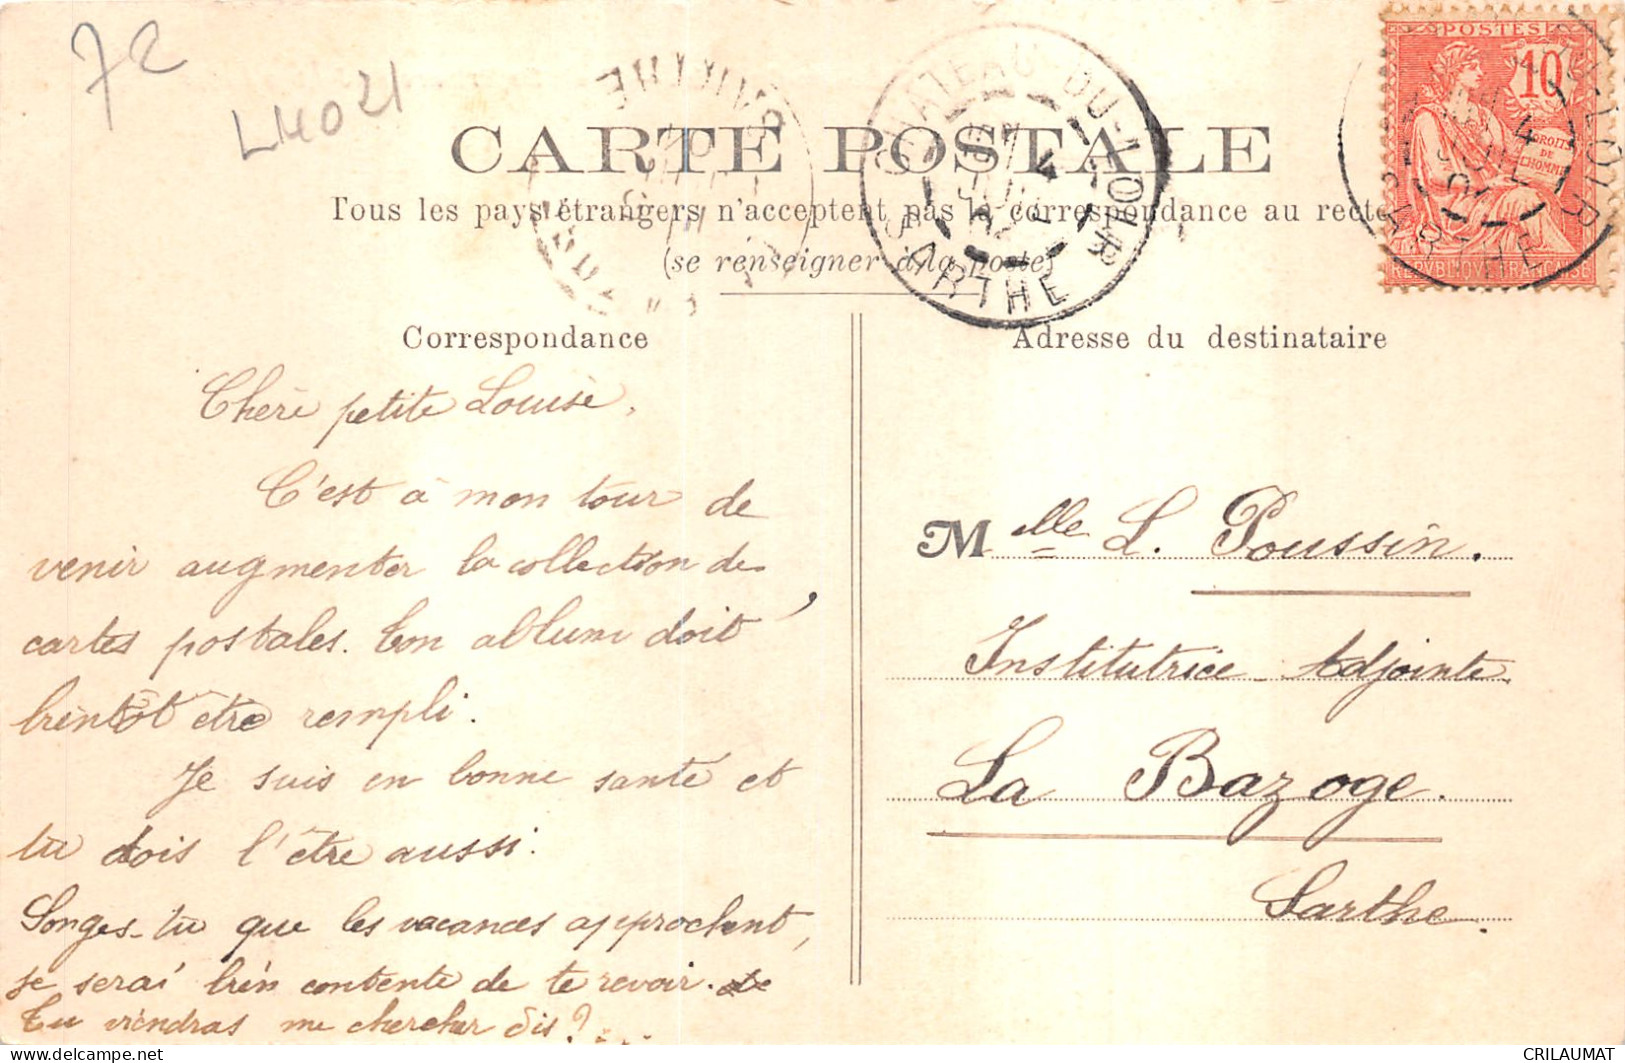 72
L14021
CARTE POSTALE
Tous les pays étrangers n'acceptent pas la correspondance au recto
(se renseigner à la poste)
CHATEAU-DU-LOIR
4
SARTHE
SARTHE
POSTES
10
DROITS
DE
L'HOMME
REPVBLIQVE FRANÇAISE
Correspondance
Chère petite Louise,
C'est à mon tour de
venir augmenter la collection de
cartes postales. Ton album doit
bientôt être rempli.
Je suis en bonne santé et
tu dois l'être aussi.
Songes-tu que les vacances approchent,
je serai bien contente de te revoir.
Tu viendras me chercher dis?...
Adresse du destinataire
Melle L. Poussin.
Institutrice-Adjointe
La Bazoge.
Sarthe.
CRILAUMAT